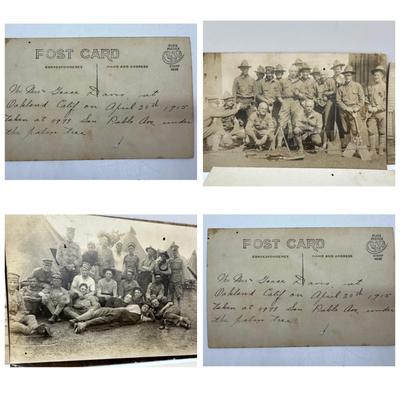 POST CARD
CORRESPONDENCE
NAME AND ADDRESS
PLACE
STAMP
HERE
Davis at
Oakland Calif on April 25th 1915
taken at 4999 San Pablo Ave under
the palm tree
POST CARD
CORRESPONDENCE
NAME AND ADDRESS
PLACE
STAMP
HERE
Davis at
Oakland Calif on April 25th 1915
taken at 4999 San Pablo Ave under
the palm tree